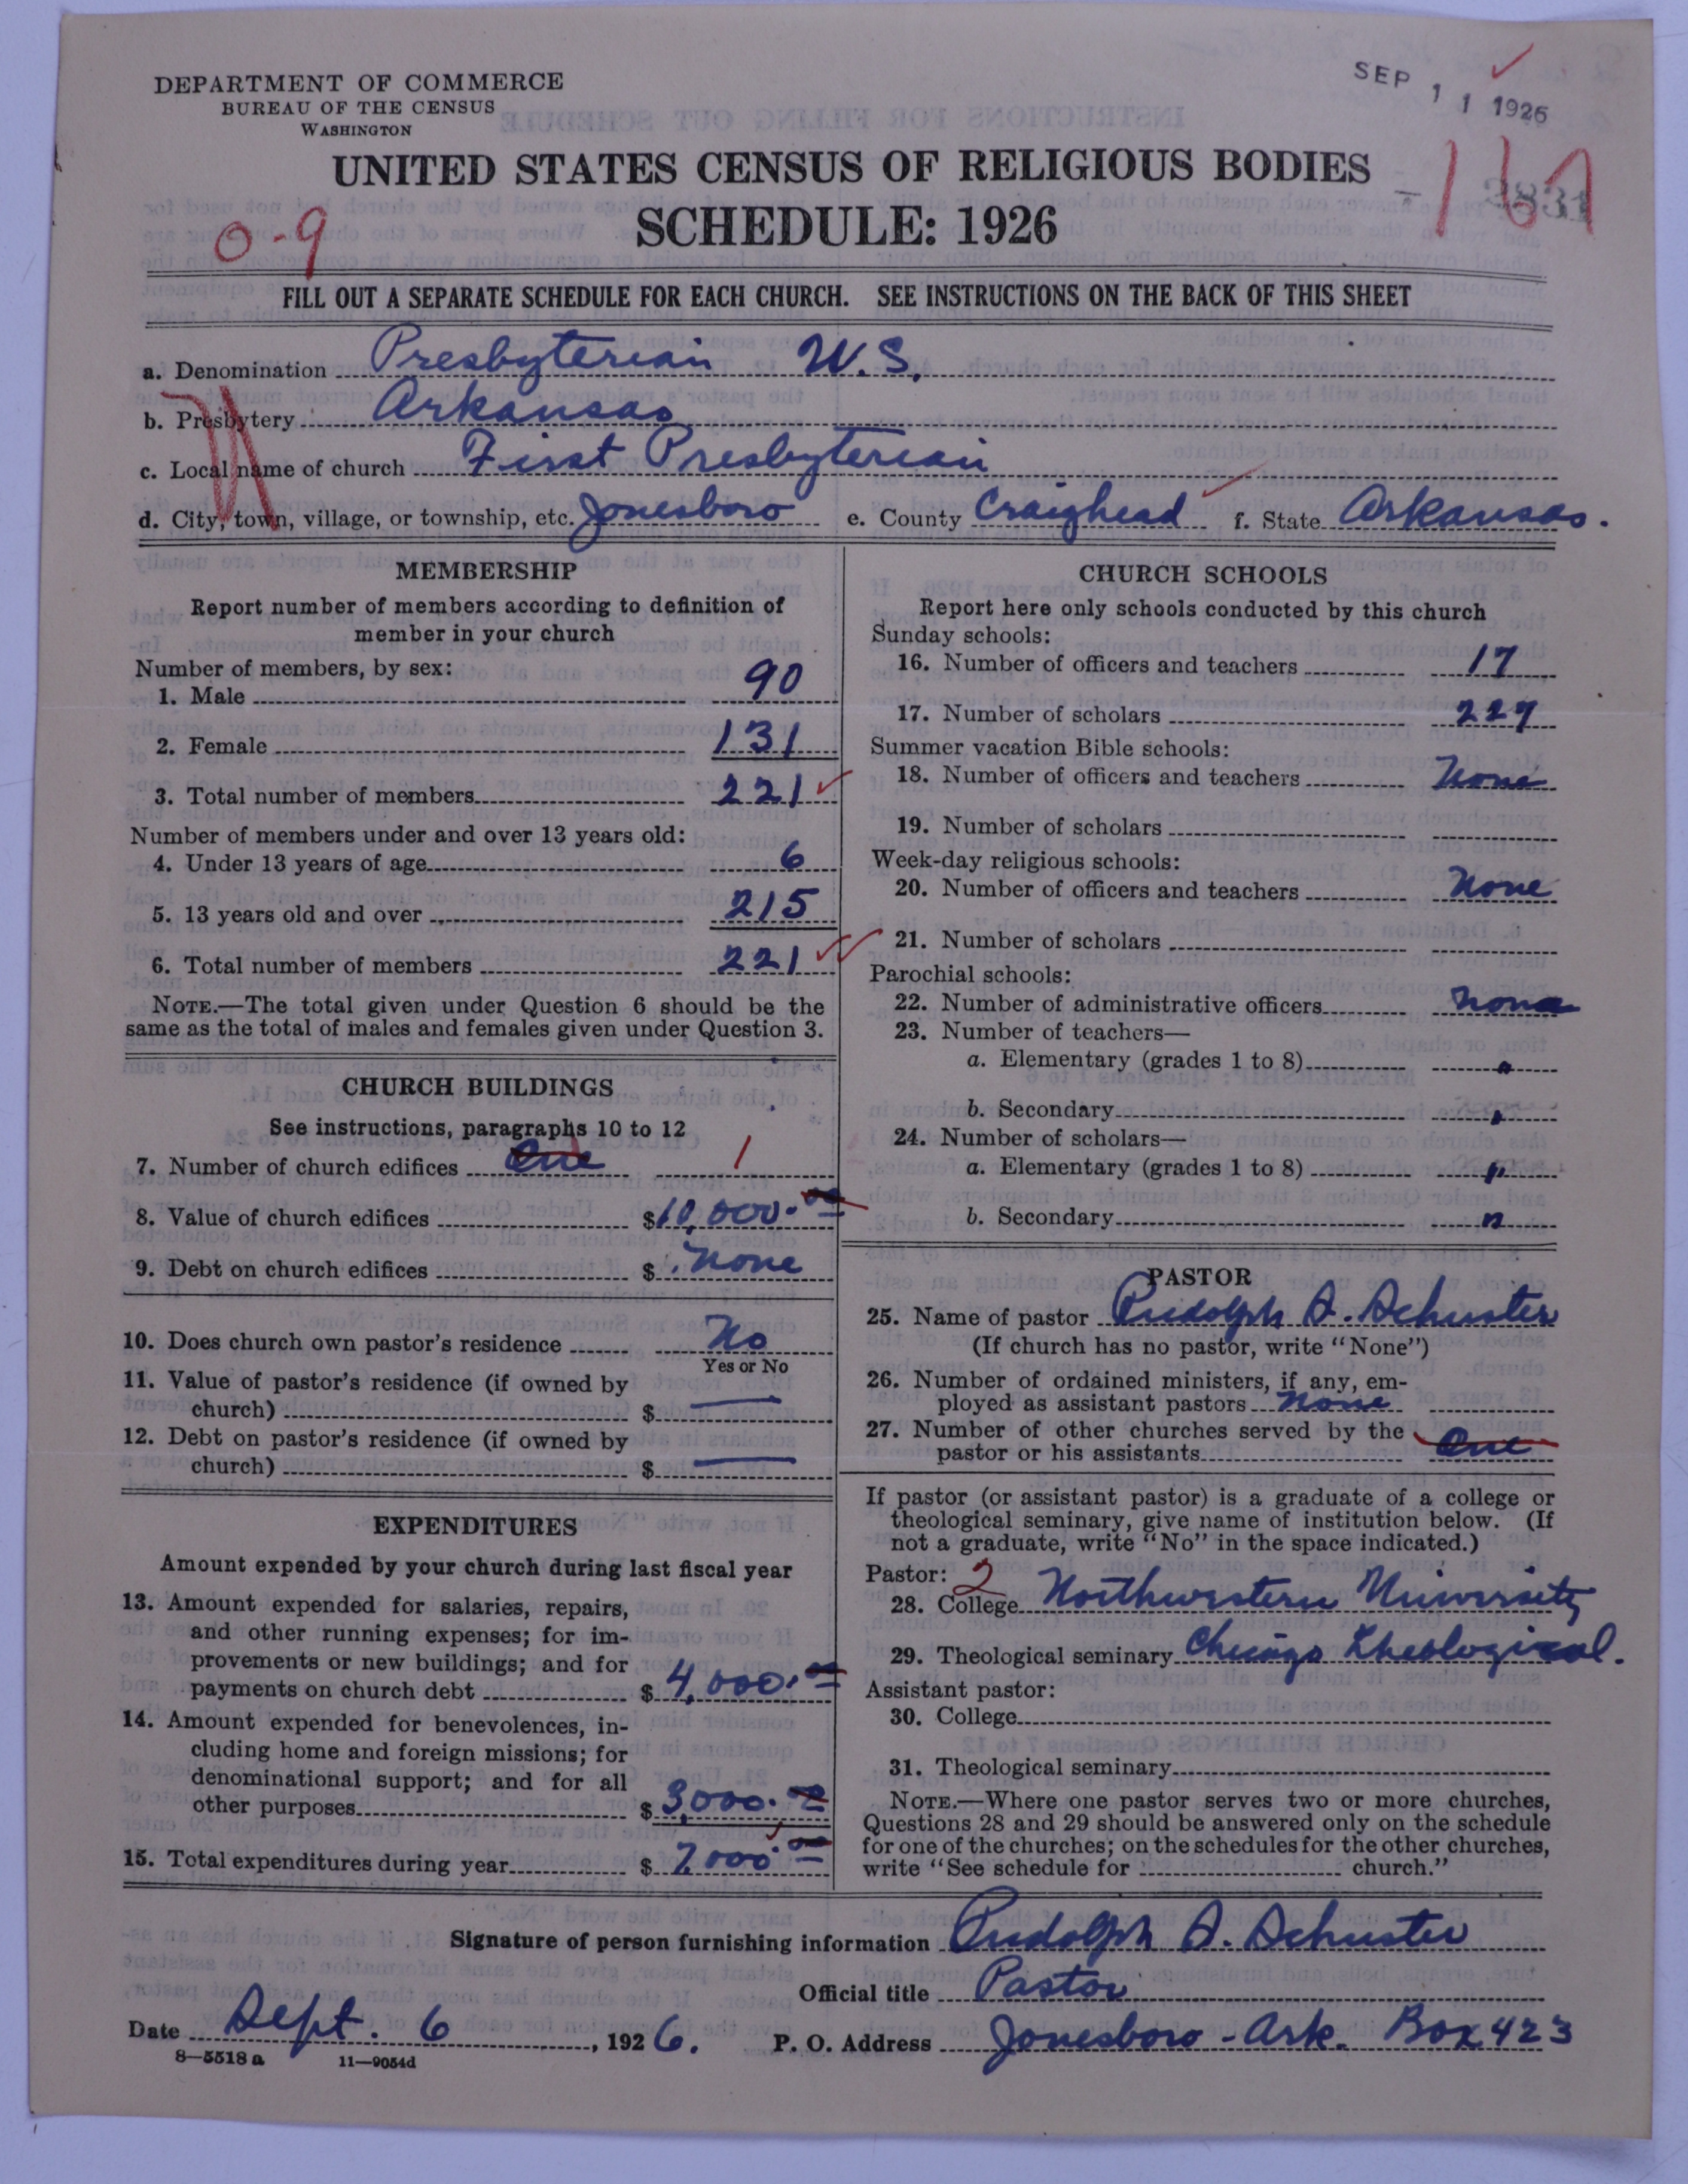 DEPARTMENT OF COMMERCE
BUREAU OF THE CENSUS
WASHINGTON
SEP 11 1926
UNITED STATES CENSUS OF RELIGIOUS BODIES
SCHEDULE: 1926
0-9
167
FILL OUT A SEPARATE SCHEDULE FOR EACH CHURCH. SEE INSTRUCTIONS ON THE BACK OF THIS SHEET
a. Denomination Presbyterian U.S.
b. Presbytery Arkansas
c. Local name of church First Presbyterian
d. City, town, village, or township, etc. Jonesboro e. County Craighead f. State Arkansas.
MEMBERSHIP
Report number of members according to definition of
member in your church
Number of members, by sex:
1. Male 90
2. Female 131
3. Total number of members 221
Number of members under and over 13 years old:
4. Under 13 years of age 6
5. 13 years old and over 215
6. Total number of members 221
NOTE.—The total given under Question 6 should be the
same as the total of males and females given under Question 3.
CHURCH BUILDINGS
See instructions, paragraphs 10 to 12
7. Number of church edifices One 1
8. Value of church edifices $10,000.00
9. Debt on church edifices $ None
10. Does church own pastor's residence No
Yes or No
11. Value of pastor's residence (if owned by
church) $ —
12. Debt on pastor's residence (if owned by
church) $ —
EXPENDITURES
Amount expended by your church during last fiscal year
13. Amount expended for salaries, repairs,
and other running expenses; for im-
provements or new buildings; and for
payments on church debt $ 4,000.00
14. Amount expended for benevolences, in-
cluding home and foreign missions; for
denominational support; and for all
other purposes $ 3,000.00
15. Total expenditures during year $ 7000.00
CHURCH SCHOOLS
Report here only schools conducted by this church
Sunday schools:
16. Number of officers and teachers 17
17. Number of scholars 227
Summer vacation Bible schools:
18. Number of officers and teachers None
19. Number of scholars
Week-day religious schools:
20. Number of officers and teachers None
21. Number of scholars
Parochial schools:
22. Number of administrative officers None
23. Number of teachers—
a. Elementary (grades 1 to 8) "
b. Secondary "
24. Number of scholars—
a. Elementary (grades 1 to 8) "
b. Secondary "
PASTOR
25. Name of pastor Rudolph A. Schuster
(If church has no pastor, write "None")
26. Number of ordained ministers, if any, em-
ployed as assistant pastors None
27. Number of other churches served by the
pastor or his assistants One
If pastor (or assistant pastor) is a graduate of a college or
theological seminary, give name of institution below. (If
not a graduate, write "No" in the space indicated.)
Pastor: 2
28. College Northwestern University
29. Theological seminary Chicago Theological.
Assistant pastor:
30. College
31. Theological seminary
NOTE.—Where one pastor serves two or more churches,
Questions 28 and 29 should be answered only on the schedule
for one of the churches; on the schedules for the other churches,
write "See schedule for church."
Signature of person furnishing information Rudolph A. Schuster
Official title Pastor
Date Sept. 6, 1926. P. O. Address Jonesboro - Ark. Box 423
8—5518 a 11—9054d